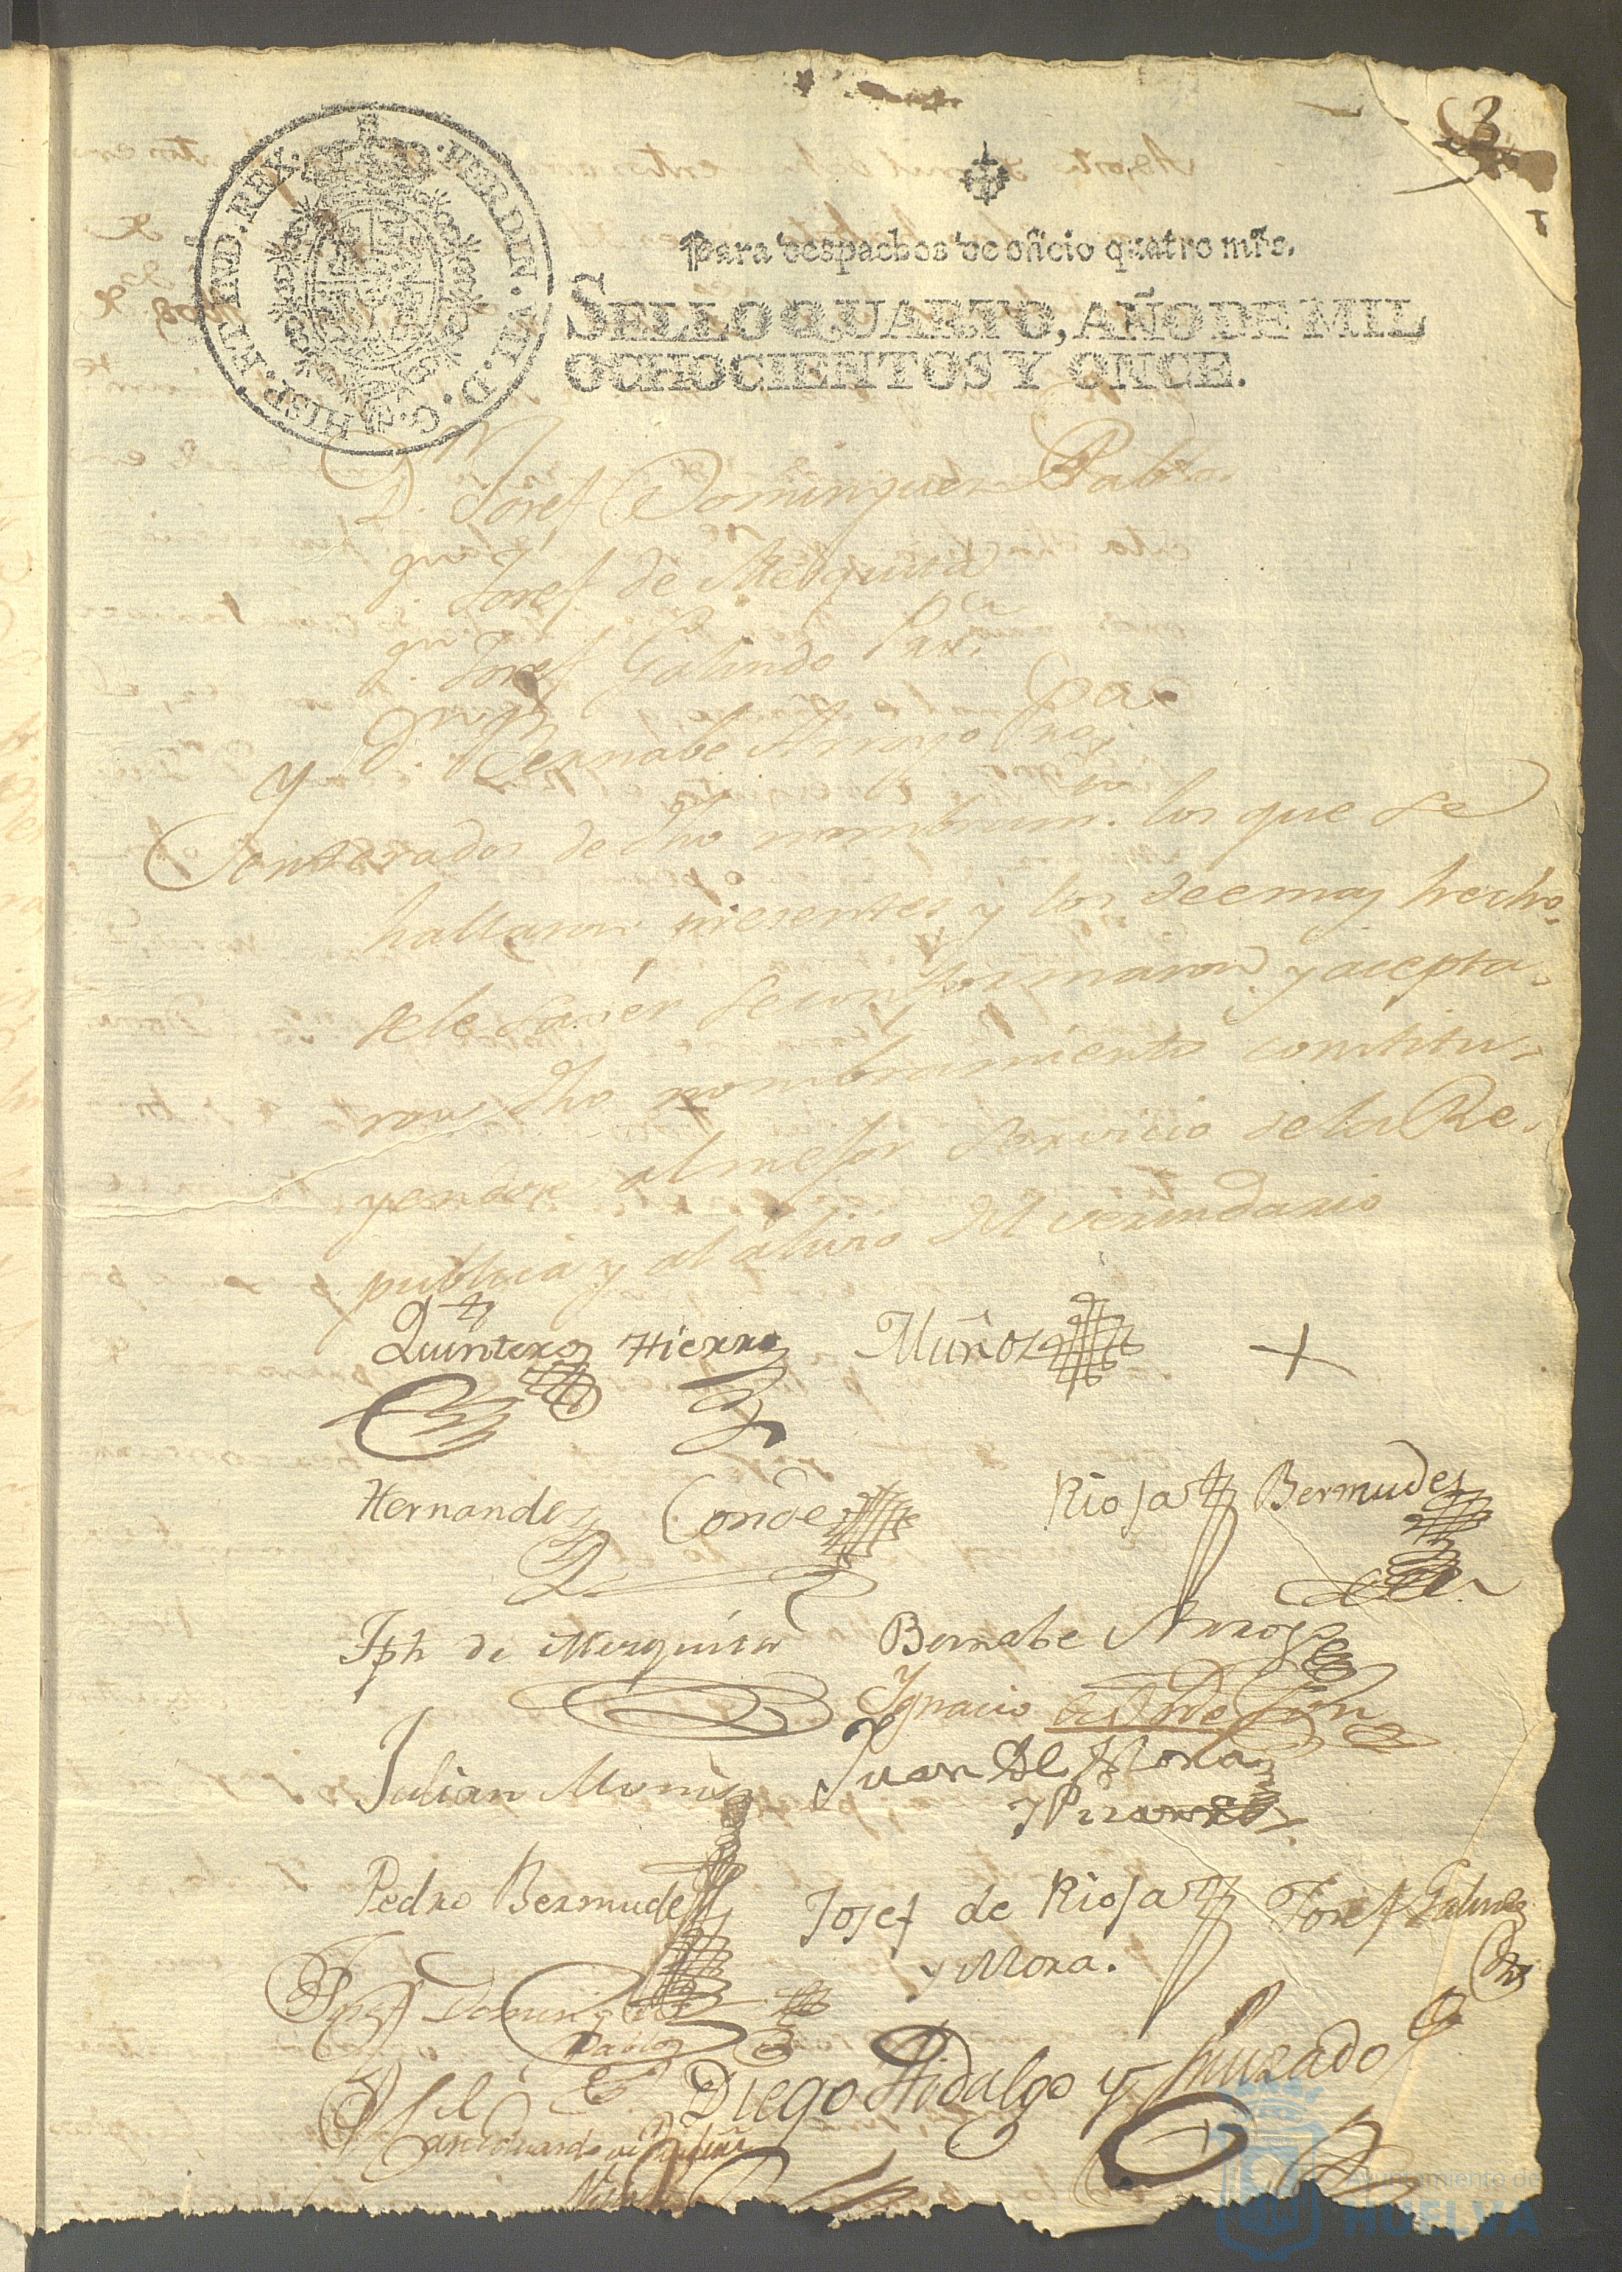 3
FERDIN. VII. D. G. HISP. ET IND. REX.
Para despachos de oficio quatro mrs.
SELLO QUARTO, AÑO DE MIL
OCHOCIENTOS Y ONCE.
Dn. Josef Dominguez Pablos.
Dn. Josef de Mezquita
Dn. Josef Galindo
y Dn. Bernabe Arroyo
Conterados de dho nombram.to los que se
hallaron presentes y los deemas hecho-
sele saver se conformaron y acepta-
ron dho nombramiento constitu-
yendose al mejor servicio de la Re-
publica y al alivio del vecindario
Quintero Hierro Muñoz +
Hernandez Conde Rioja Bermudez
Jph de Mezquita Bernabe Arroyo
Ignacio de
Julian Muñiz Juan Al. Mora
y Pizarro
Pedro Bermudez Josef de Rioja Josef Galindo
y Mora.
Josef Dominguez
Pablos
Diego Hidalgo y Huzado
Ayuntamiento de
HUELVA